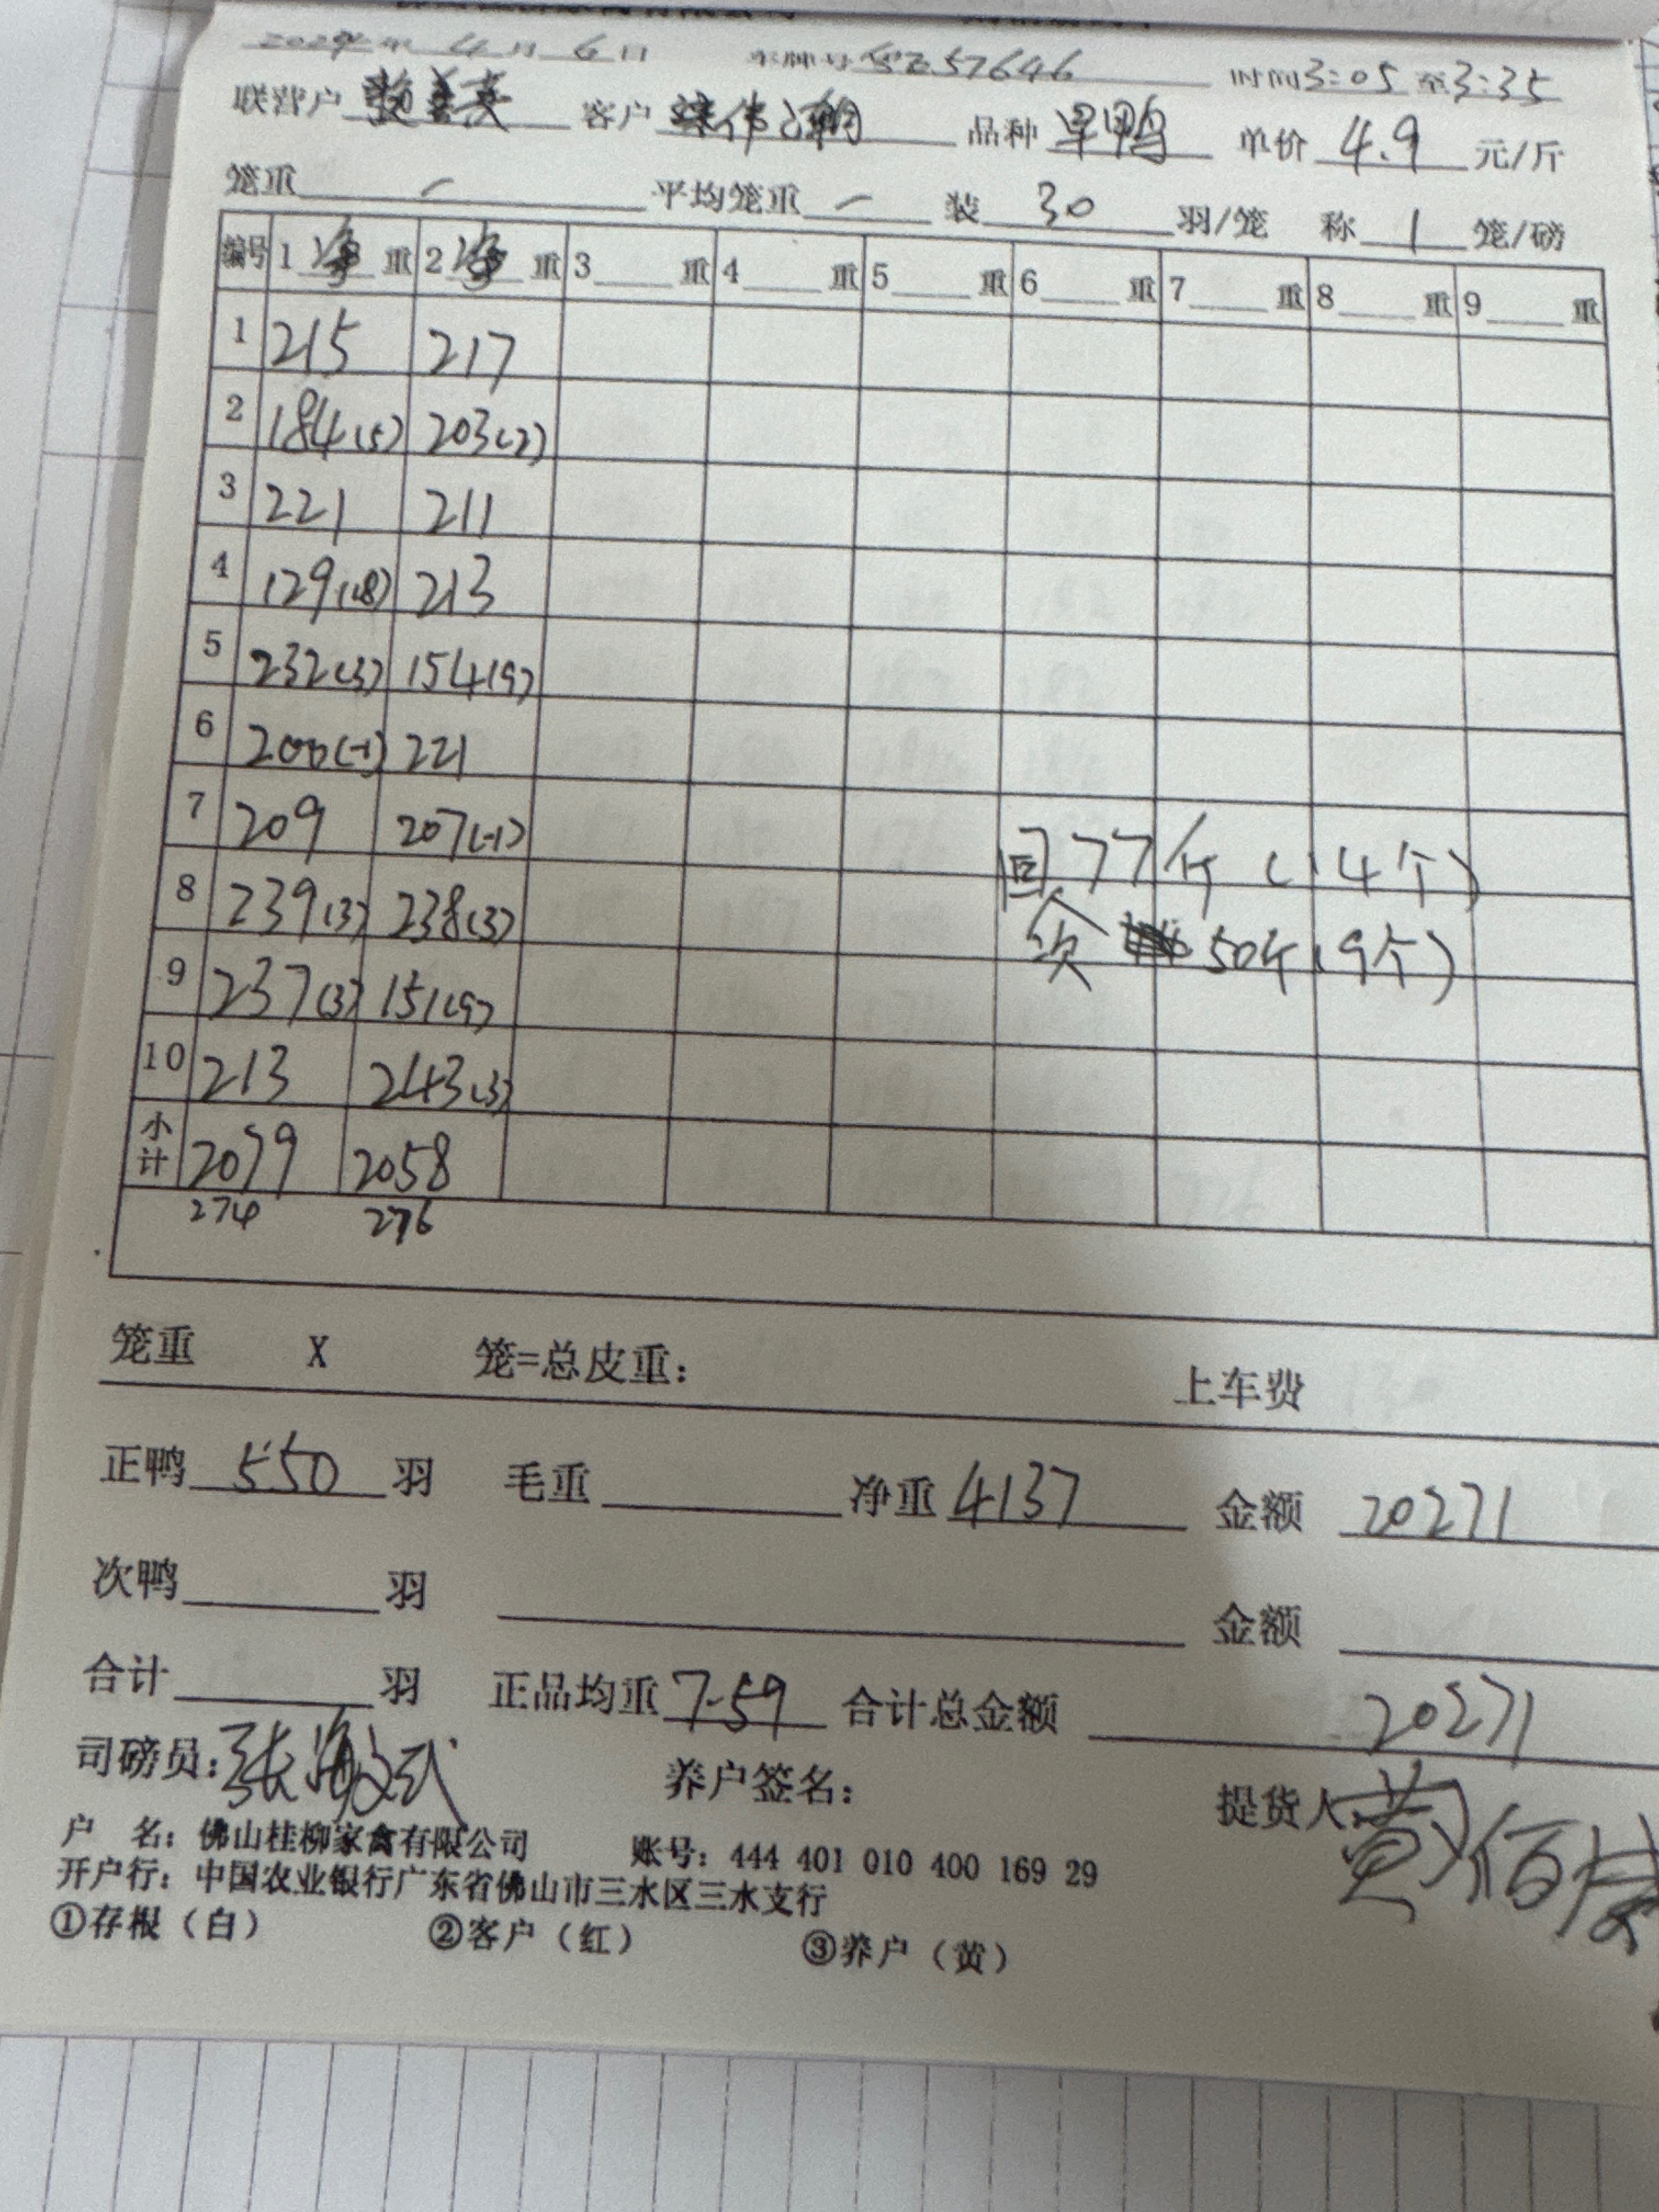 2024年 4月 6日 车牌号 57646 时间3:05至3:35
联营户 客户 品种 旱鸭 单价 4.9 元/斤
笼重 一 平均笼重 一 装 30 羽/笼 称 1 笼/磅
编号 1 净 重 2 净 重 3 重 4 重 5 重 6 重 7 重 8 重 9 重
1 215 217
2 184(5) 203(2)
3 221 211
4 129(8) 213
5 232(3) 154(9)
6 200(-1) 221
7 209 207(-1)
回77斤(14个)
8 239(3) 238(3)
欠 50斤(9个)
9 237(3) 151(9)
10 213 243(3)
小计 2079 2058
274 276
笼重 X 笼=总皮重: 上车费
正鸭 550 羽 毛重 净重 4137 金额 20271
次鸭 羽 金额
合计 羽 正品均重 7.59 合计总金额 20271
司磅员: 养户签名: 提货人:
户 名: 佛山桂柳家禽有限公司 账号: 444 401 010 400 169 29
开户行: 中国农业银行广东省佛山市三水区三水支行
①存根(白) ②客户(红) ③养户(黄)